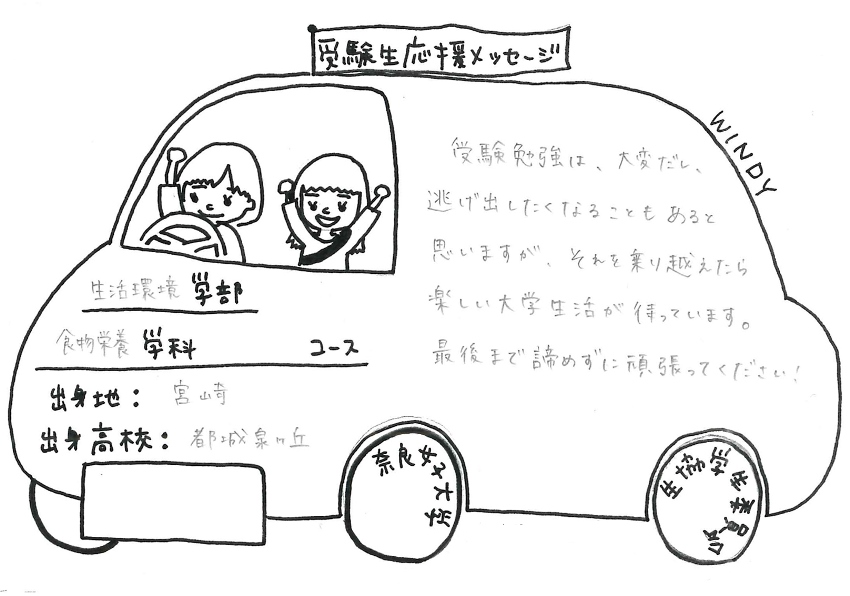 受験生応援メッセージ
WINDY
受験勉強は、大変だし、
逃げ出したくなることもあると
思いますが、それを乗り越えたら
楽しい大学生活が待っています。
最後まで諦めずに頑張ってください!
生活環境 学部
食物栄養 学科 コース
出身地: 宮崎
出身高校: 都城泉ヶ丘
奈良女子大学
生協学生委員会